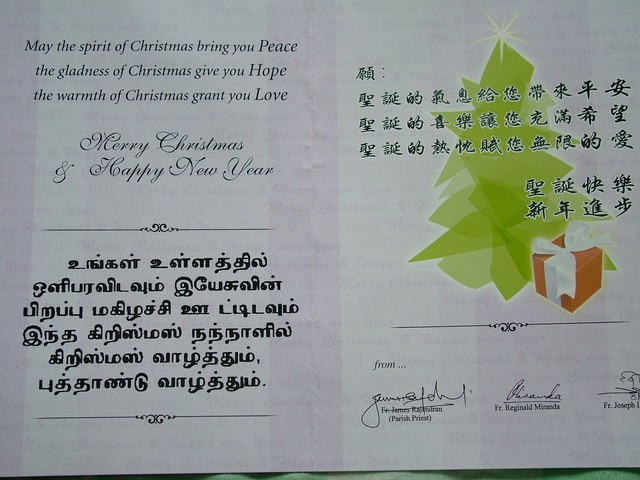 May the spirit of Christmas bring you Peace
the gladness of Christmas give you Hope
the warmth of Christmas grant you Love
Merry Christmas
& Happy New Year
உங்கள் உள்ளத்தில்
ஒளிபரவிடவும் இயேசுவின்
பிறப்பு மகிழச்சி ஊ ட்டிடவும்
இந்த கிறிஸ்மஸ் நந்நாளில்
கிறிஸ்மஸ் வாழ்த்தும்,
புத்தாண்டு வாழ்த்தும்.
願：
聖誕的氣息給您帶來平安
聖誕的喜樂讓您充滿希望
聖誕的熱忱賦您無限的愛
聖誕快樂
新年進步
from ...
Fr. James Rajendran
(Parish Priest)
Fr. Reginald Miranda
Fr. Joseph